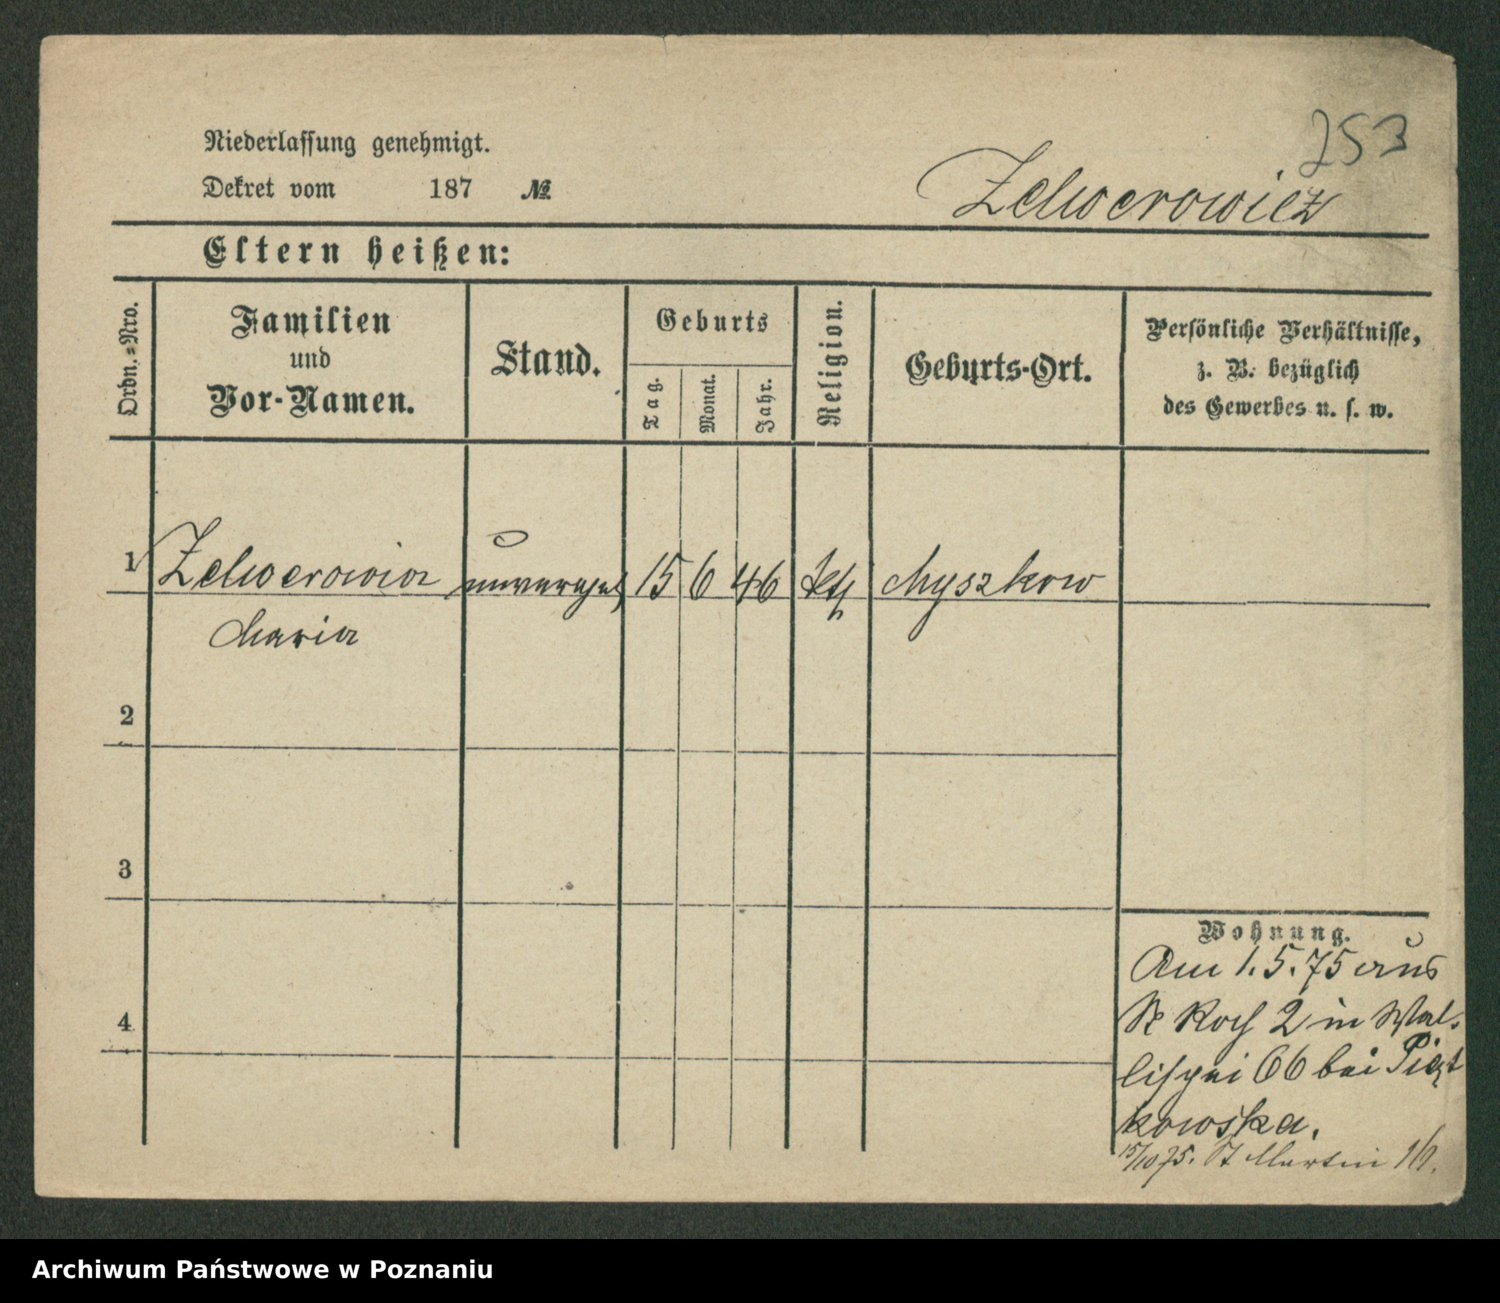 253
Niederlassung genehmigt.
Dekret vom 187 №
Zelwerowicz
Eltern heißen:
Ordn.=Nro.
Familien
und
Vor-Namen.
Stand.
Geburts
Tag.
Monat.
Jahr.
Religion.
Geburts-Ort.
Persönliche Verhältnisse,
z. B. bezüglich
des Gewerbes u. s. w.
1 Zelwerowicz 15 6 46 kth Myszkow
Maria
2
3
4
Wohnung.
Am 1.5.75 aus
2 in Wal-
lischei 66 bei Piąt
kowska.
15/10 75. St Martin 16.
Archiwum Państwowe w Poznaniu